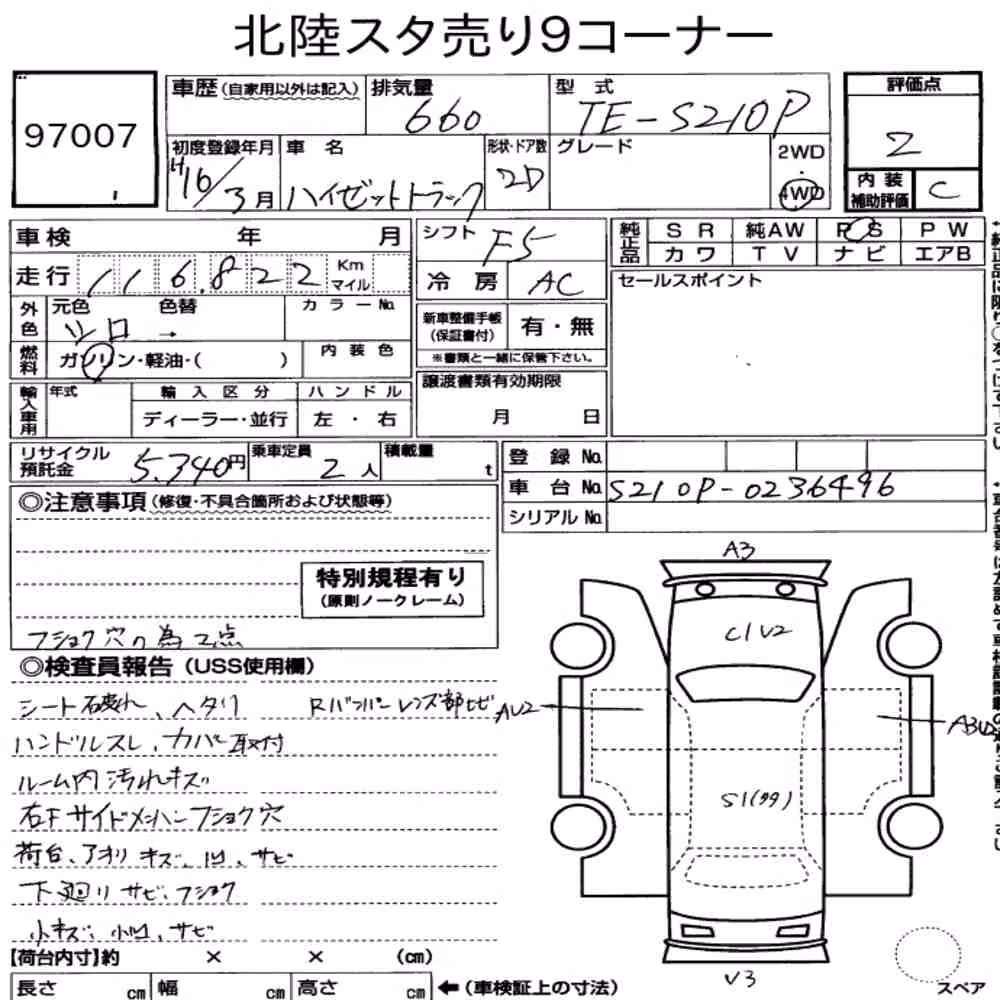 北陸スタ売り9コーナー
97007
車歴 (自家用以外は記入) 排気量 660
型式 TE-S210P
評価点 2
内装補助評価 C
初度登録年月 H16/3月
車名 ハイゼットトラック
形状・ドア数 2D
グレード
2WD・4WD
車検 年 月
シフト F5
純正品 SR 純AW PS PW
カワ TV ナビ エアB
走行 116,822 Km マイル
冷房 AC
セールスポイント
外色 元色 シロ → 色替 カラーNo.
新車整備手帳(保証書付) 有・無
※書類と一緒に保管下さい。
燃料 ガソリン・軽油・( ) 内装色
輸入車用 年式 輸入区分 ハンドル
ディーラー・並行 左・右
譲渡書類有効期限
月 日
リサイクル預託金 5,340円 乗車定員 2人 積載量 t
登録No.
車台No. S210P-0236496
シリアルNo.
◎注意事項 (修復・不具合箇所および状態等)
特別規程有り
(原則ノークレーム)
フショク穴の為2点
◎検査員報告 (USS使用欄)
シート破れ、ヘタリ Rバンパーレンズ部ヒビ
ハンドルスレ、カバー取付
ルーム内汚れキズ
右Fサイドメンバーフショク穴
荷台、アオリキズ、凹、サビ
下廻リサビ、フショク
小キズ、小凹、サビ
A3
C1V2
AU2
S1(99)
V3
【荷台内寸】約 × × (cm)
長さ cm 幅 cm 高さ cm ←(車検証上の寸法)
スペア